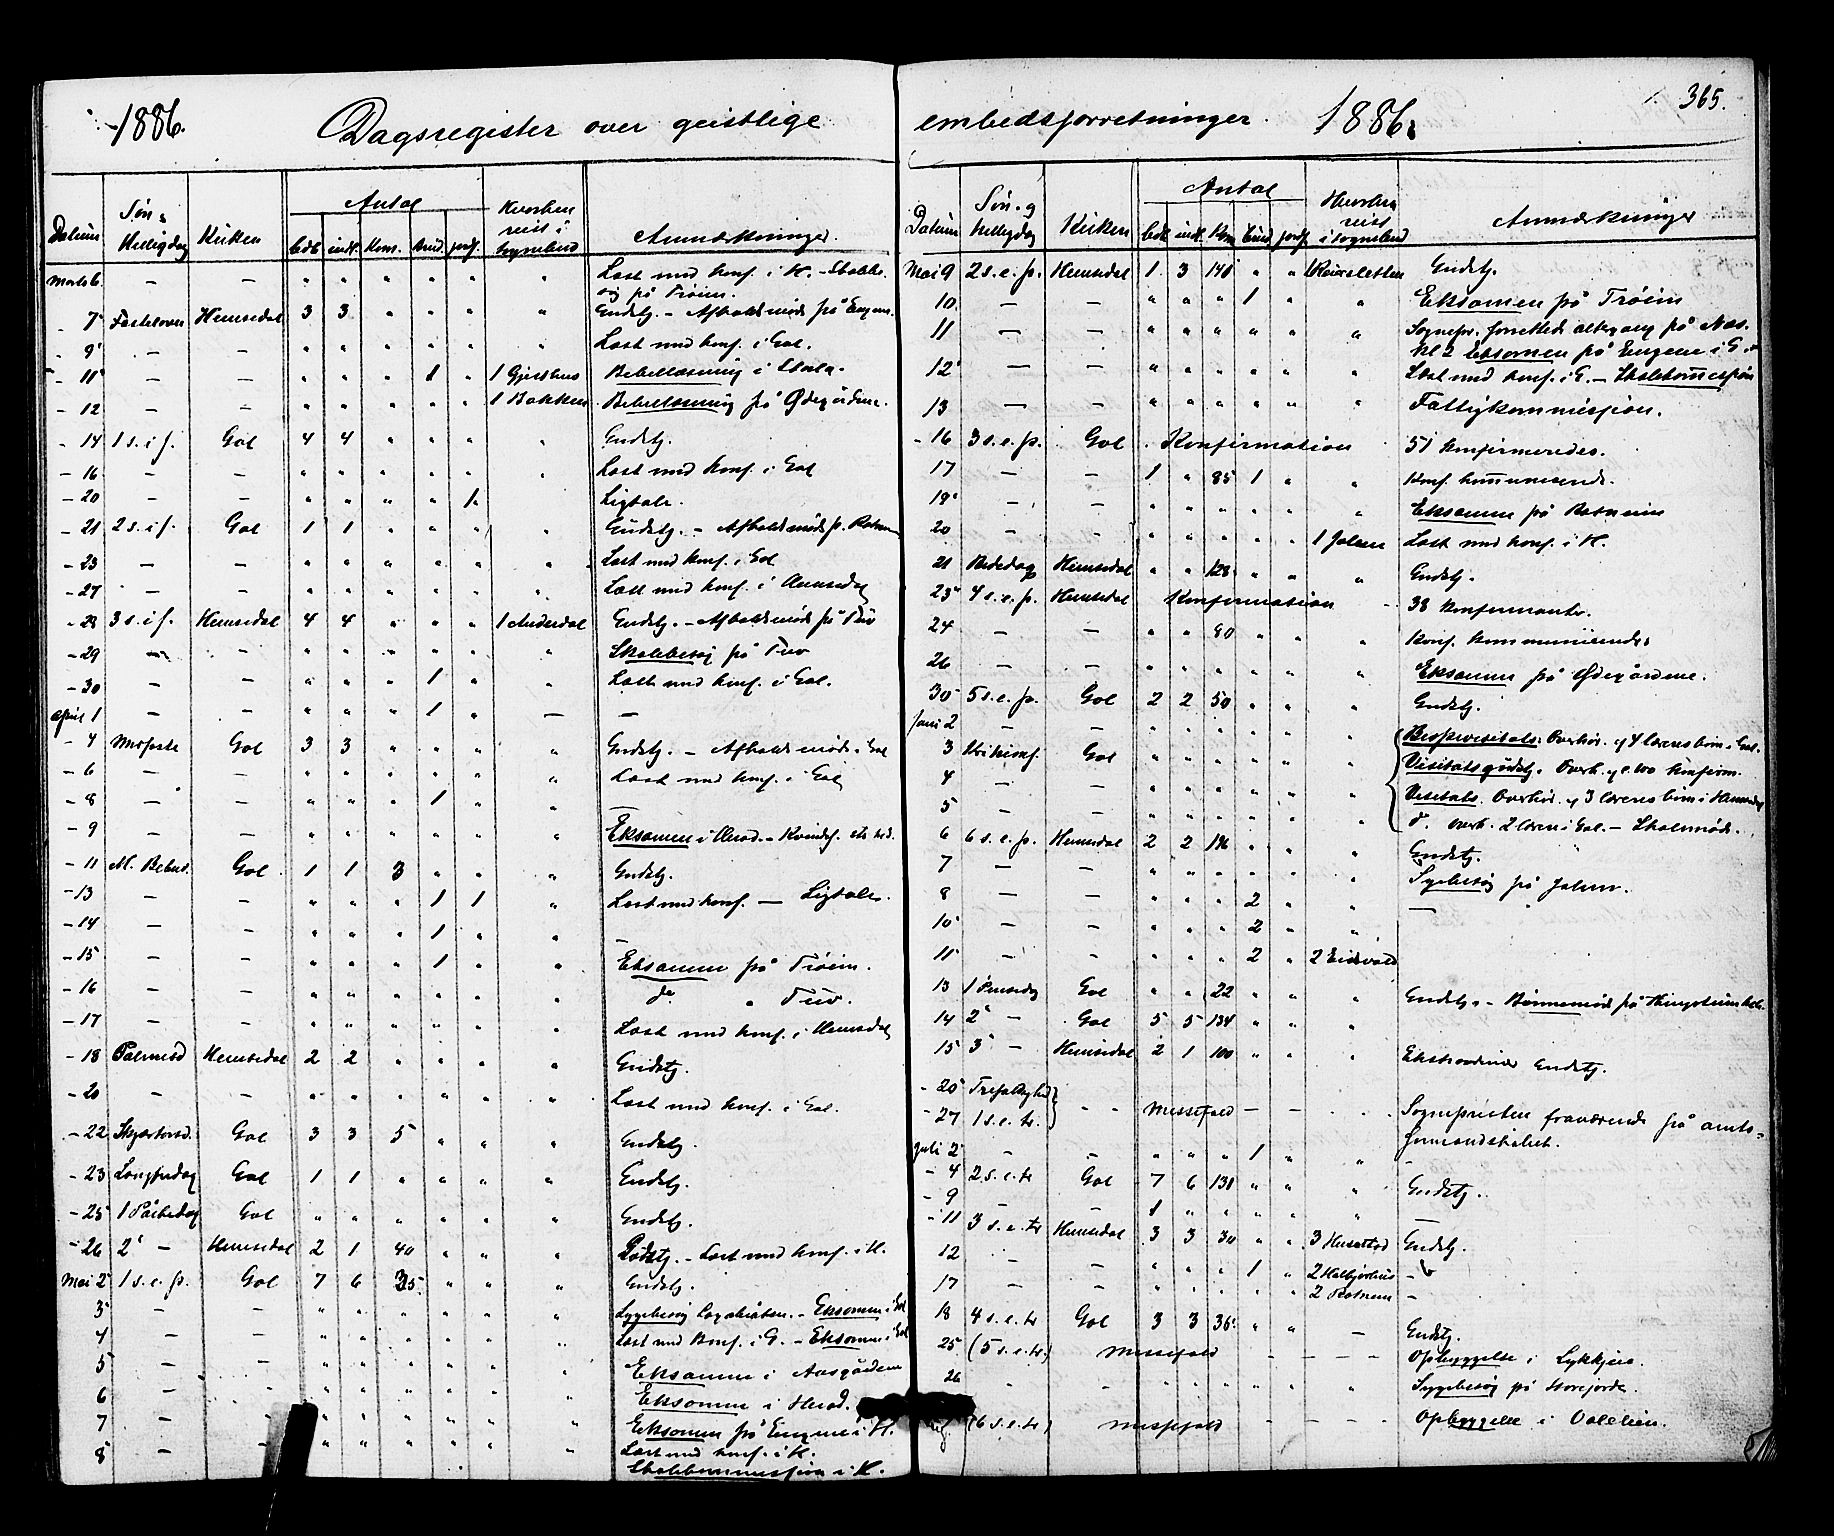 1886. Dagsregister over geistlige
Datum Søn- Helligdag Kirken Antal døb. indl. kom. brud. jordf. Hvorhen reist i sognebud Anmærkninger.
Marts 6. — — " " " " " " Læst med konf. i H. - Skolek.
og på Trøim.
- 7 Fastelavn Hemsedal 3 3 " " " " Gudstj. - Afholdsmøde på Engene.
- 9 — — " " " " " " Læst med konf. i Gol.
- 11 — — " " " 1 " 1 Gjesthus Bibellæsning i Storla.
- 12 — — " " " " " 1 Bakken Bibellæsning på Ødegården.
- 14 1 s. i f. Gol 4 4 " " " " Gudstj.
- 16 — — " " " " " " Læst med konf. i Gol
- 20 — — " " " " 1 Ligtale.
- 21 2 s. i f. Gol 1 1 " " " " Gudstj. - Afholdsmøde p. Rotnem
- 23 — — " " " " " " Læst med konf. i Gol
- 27 — — " " " " " " Læst med konf. i Hemsedal
- 28 3 s. i f. Hemsedal 4 4 " " " 1 Anderdal Gudstj. - Afholdsmøde på Tuv
- 29 — — " " " " " " Skolebesøg på Tuv
- 30 — — " " " 1 " " Læst med konf. i Gol.
April 1 — — " " " 1 " — —
- 4 Midfaste Gol 3 3 " " " " Gudstj. - Afholdsmøde i Gol
- 6 — — " " " " " " Læst med konf. i Gol
- 8 — — " " " 1 " " —
- 9 — — " " " " " " Eksamen i Herad. - Kvindef.
- 11 M. Bebud. Gol 1 1 3 " " " Gudstj.
- 13 — — " " " 1 1 " Læst med konf. — Ligtale.
- 14 — — " " " 1 " " —
- 15 — — " " " 1 " " Eksamen på Trøim.
- 16 — — " " " " " " do " Tuv.
- 17 — — " " " " " " Læst med konf. i Hemsedal
- 18 Palmesd Hemsedal 2 2 " " " " Gudstj.
- 20 — — " " " " " " Læst med konf. i Gol.
- 22 Skjærtorsd. Gol 3 3 5 " " " Gudstj.
- 23 Langfredag Gol 1 1 " " " " Gudstj.
- 25 1 Påskedag Gol " " " " " " Gudstj.
- 26 2' — Hemsedal 2 1 40 " " " Gudstj. - Læst med konf. i H.
Mai 2 1 s. e. p. Gol 7 6 35 " " " Gudstj.
3 — — " " " " " " Sygebesøg - Eksamen i Gol
4 — — " " " " " " Læst med konf. i G. - Eksamen i Gol
5 — — " " " " " " Eksamen i Aasgårdene
6 — — " " " " " " Eksamen i Herad.
7 — — " " " " " " Eksamen på Engene i H.
8 — — " " " " " " Læst med konf. i H.
Skolekommission i H.
embedsforretninger. 1886. 365.
Datum Søn- g Helligdag Kirken Antal døb. indl. kom brud. jordf. Hvorhen reist i sognebud Anmærkninger
Mai 9 2 s. e. p. Hemsedal 1 3 140 " " Gudstj.
10. — — " " " 1 " " Eksamen på Trøim
11 — — " " " " " " Sognepr. forrettede altergang på Næs.
Kl 2 Eksamen på Engene i G.
12 — — " " " " " " Læst med konf. i G. - Skolekommission
13 — — " " " " " " Fattigkommission.
- 16 3 s. e. p. Gol Konfirmation 51 konfirmeredes.
17 — — 1 " 85 1 " " Konf. kommunicerede.
19 — — " " " " " " Eksamen på Rotneim
20 — — " " " " " 1 Jolsen Læst med konf. i H.
21 Bededag Hemsedal " " 128 " " " Gudstj.
23 4 s. e. p. Hemsedal Konfirmation - 38 konfirmanter.
24 — — " " 90 " " " Konf. kommunicerede.
26 — — " " " " " " Eksamen på Ødegårdene.
30 5 s. e. p. Gol 2 2 50 " " " Gudstj.
Juni 2 — — " " " " " " Bispevisitats: Overhør. af 4 kredses børn i Gol.
3 Kr. himf. Gol " " " " " " Visitatsgudstj. Overh. af c. 100 konfirm.
4 — — " " " " " " Visitats. Overhør. af 3 kredses børn i Hemsedal
5 — — " " " " " " do. Overh. 2 kredse i Gol. - Skolemøde.
6 6 s. e. p. Hemsedal 2 2 " " " Gudstj.
7 — — " " " " " " Sygebesøg på Jolsen.
8 — — " " " 2 " " —
10 — — " " " 2 " "
11 — — " " " 2 " 2 Eidsvold
13 1 Pinsedag Gol " " 22 " " " Gudstj. - Børnemøde på
14 2' — Gol 5 5 134 " " "
15 3' — Hemsedal 2 1 100 " " " Ekstraordinær Gudstj.
- 20 Trefoldighed } " " Messefald — — " "
- 27 1 s. e. tr. Sognepresten fraværende på amts-
formandskabet.
Juli 2 — — " " " 1 " " —
- 4 2 s. e. tr Gol 7 6 130 " " " Gudstj.
- 9 — — 1 " " " " " —
- 11 3 s. e. tr Hemsedal 3 3 30 " " 3 Gudstj.
12 — — " " " 1 " 2 —
17 — — " " " " " 2 Rotnem —
18 4 s. e. tr Gol 3 3 36 " " — Gudstj.
25 (5 s. e. tr.) Messefald — — — — Opbyggelse i Lykkjen.
26 — " " " " " " Sygebesøg på Storejorde.
(6 s. e. tr) Messefald — — — — Opbyggelse i